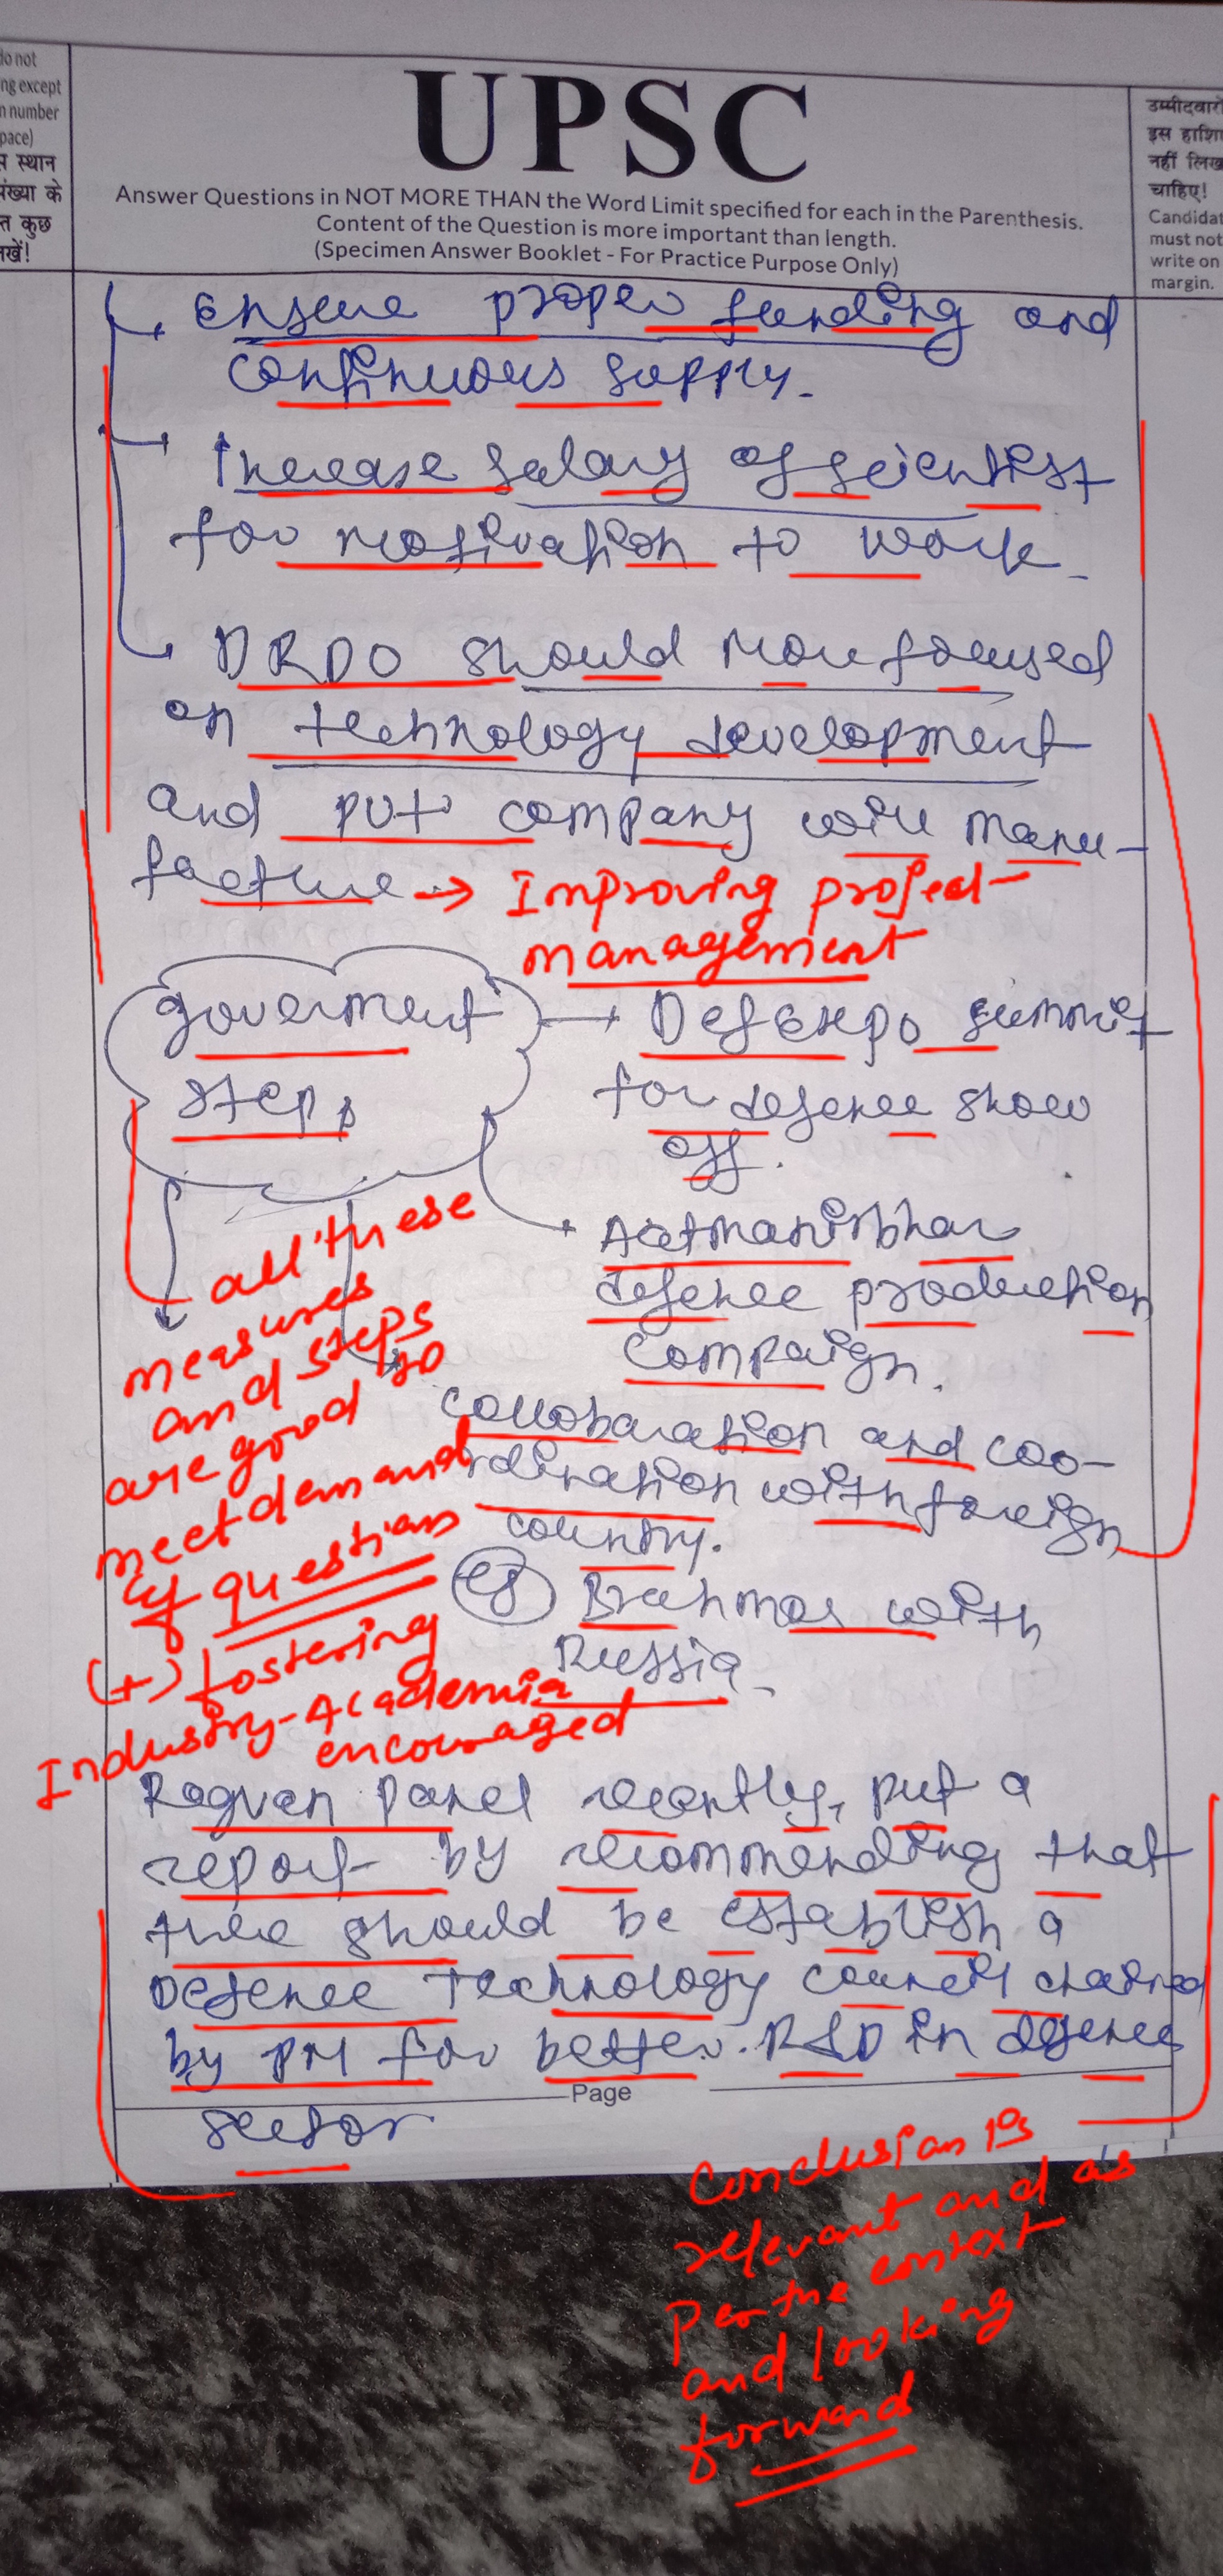 do not
ng except
n number
pace)
स स्थान
संख्या के
त कुछ
खें!
UPSC
Answer Questions in NOT MORE THAN the Word Limit specified for each in the Parenthesis.
Content of the Question is more important than length.
(Specimen Answer Booklet - For Practice Purpose Only)
उम्मीदवारों
इस हाशि
नहीं लिख
चाहिए!
Candidat
must not
write on
margin.
Ensure proper funding and
continuous supply.
Increase salary of scientist
for motivation to work.
DRDO should more focused
on technology development
and put company will manu-
facture → Improving project
management
goverment
steps
→ DefExpo summit
for defence show
off.
Aatmanirbhar
defence production
Compaign.
collobaration and coo-
rdination with foreign
country.
eg Brahmos with
Russia.
all these
measures
and steps
are good to
meet demand
of questions
(+) fostering
Industry-Academia
encouraged
Ragvan panel recently, put a
report by recommending that
there should be establish a
Defence Technology council chaired
by PM for better R&D in defence
Page
sector
Conclusion is
relevant and as
per the context
and looking
forward